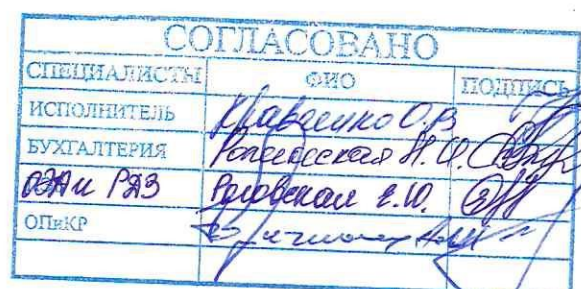 СОГЛАСОВАНО
СПЕЦИАЛИСТЫ ФИО ПОДПИСЬ
ИСПОЛНИТЕЛЬ Кравченко О.В.
БУХГАЛТЕРИЯ
ОЭАи РАЗ Роговская Е.Ю.
ОПиКР